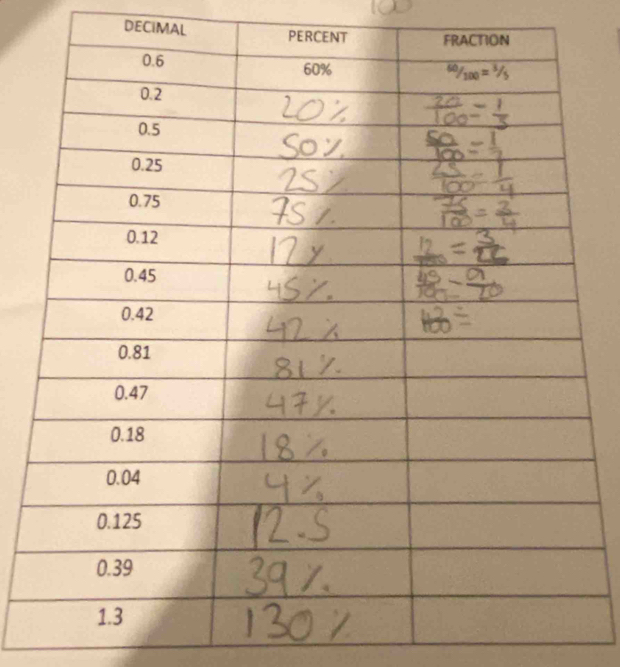 100
DECIMAL PERCENT FRACTION
0.6 60% 60/100 = 3/5
0.2 20% 20/100 = 1/5
0.5 50% 50/100 = 1/2
0.25 25% 25/100 = 1/4
0.75 75% 75/100 = 3/4
0.12 12% 12/100 = 3/
0.45 45% 45/100 = 9/20
0.42 42% 42/100 =
0.81 81%
0.47 47%
0.18 18%
0.04 4%
0.125 12.5
0.39 39%
1.3 130%